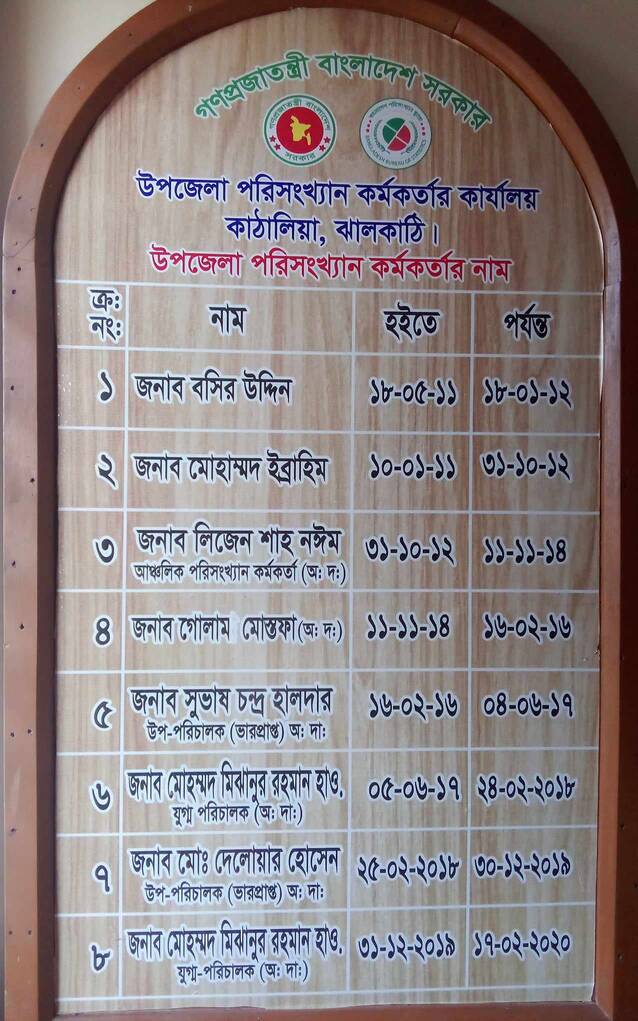 গণপ্রজাতন্ত্রী বাংলাদেশ সরকার
উপজেলা পরিসংখ্যান কর্মকর্তার কার্যালয়
কাঠালিয়া, ঝালকাঠি।
উপজেলা পরিসংখ্যান কর্মকর্তার নাম
ক্র: নং: নাম হইতে পর্যন্ত
১ জনাব বসির উদ্দিন ১৮-০৫-১১ ১৮-০১-১২
২ জনাব মোহাম্মদ ইব্রাহিম ১০-০১-১১ ৩১-১০-১২
৩ জনাব লিজেন শাহ নঈম ৩১-১০-১২ ১১-১১-১৪
আঞ্চলিক পরিসংখ্যান কর্মকর্তা (অ: দ:)
৪ জনাব গোলাম মোস্তফা(অ: দ:) ১১-১১-১৪ ১৬-০২-১৬
৫ জনাব সুভাষ চন্দ্র হালদার ১৬-০২-১৬ ০৪-০৬-১৭
উপ-পরিচালক (ভারপ্রাপ্ত) অ: দা:
৬ জনাব মোহম্মদ মিঝানুর রহমান হাও. ০৫-০৬-১৭ ২৪-০২-২০১৮
যুগ্ম পরিচালক (অ: দা:)
৭ জনাব মোঃ দেলোয়ার হোসেন ২৫-০২-২০১৮ ৩০-১২-২০১৯
উপ-পরিচালক (ভারপ্রাপ্ত) অ: দা:
৮ জনাব মোহম্মদ মিঝানুর রহমান হাও. ৩১-১২-২০১৯ ১৭-০২-২০২০
যুগ্ম-পরিচালক (অ: দা:)